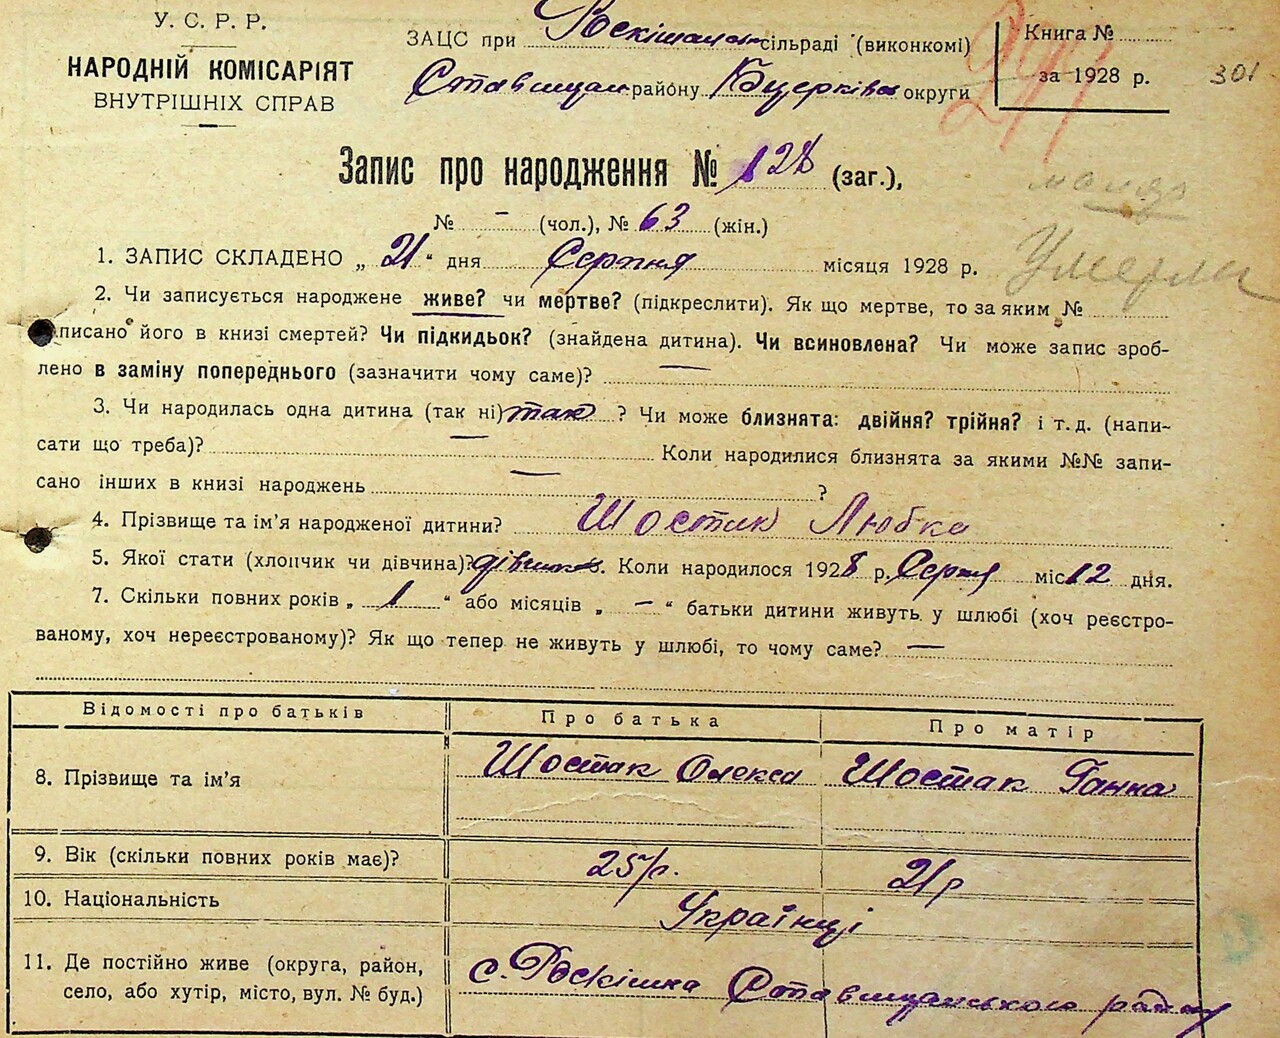 У. С. Р. Р.
НАРОДНІЙ КОМІСАРІЯТ
ВНУТРІШНІХ СПРАВ
ЗАЦС при Роскішанськ сільраді (виконкомі)
Ставищан району Б/церківс округи
Книга №
за 1928 р.
301
Запис про народження № 128 (заг.),
№ - (чол.), № 63 (жін.)
1. ЗАПИС СКЛАДЕНО „ 21 “ дня Серпня місяця 1928 р.
Умерла
2. Чи записується народжене живе? чи мертве? (підкреслити). Як що мертве, то за яким №
писано його в книзі смертей? Чи підкидьок? (знайдена дитина). Чи всиновлена? Чи може запис зроб-
лено в заміну попереднього (зазначити чому саме)? —
3. Чи народилась одна дитина (так ні) так ? Чи може близнята: двійня? трійня? і т. д. (напи-
сати що треба)? — Коли народилися близнята за якими №№ запи-
сано інших в книзі народжень — ?
4. Прізвище та ім'я народженої дитини? Шостак Любка
5. Якої стати (хлопчик чи дівчина)? дівчинка. Коли народилося 1928 р. Серпня міс 12 дня.
7. Скільки повних років „ 1 “ або місяців „ — “ батьки дитини живуть у шлюбі (хоч реєстро-
ваному, хоч нереєстрованому)? Як що тепер не живуть у шлюбі, то чому саме? —
Відомості про батьків Про батька Про матір
8. Прізвище та ім'я Шостак Олекса Шостак Ганна
9. Вік (скільки повних років має)? 25 р. 21 р
10. Національність Українці
11. Де постійно живе (округа, район,
село, або хутір, місто, вул. № буд.) с. Роскішна Ставищанського району